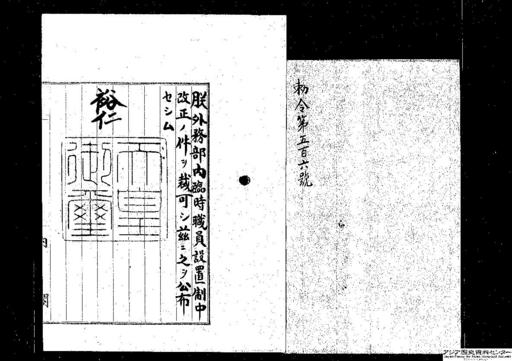 勅令第五百六號
朕外務部內臨時職員設置制中
改正ノ件ヲ裁可シ茲ニ之ヲ公布
セシム
裕仁
天皇
御璽
內閣
アジア歴史資料センター